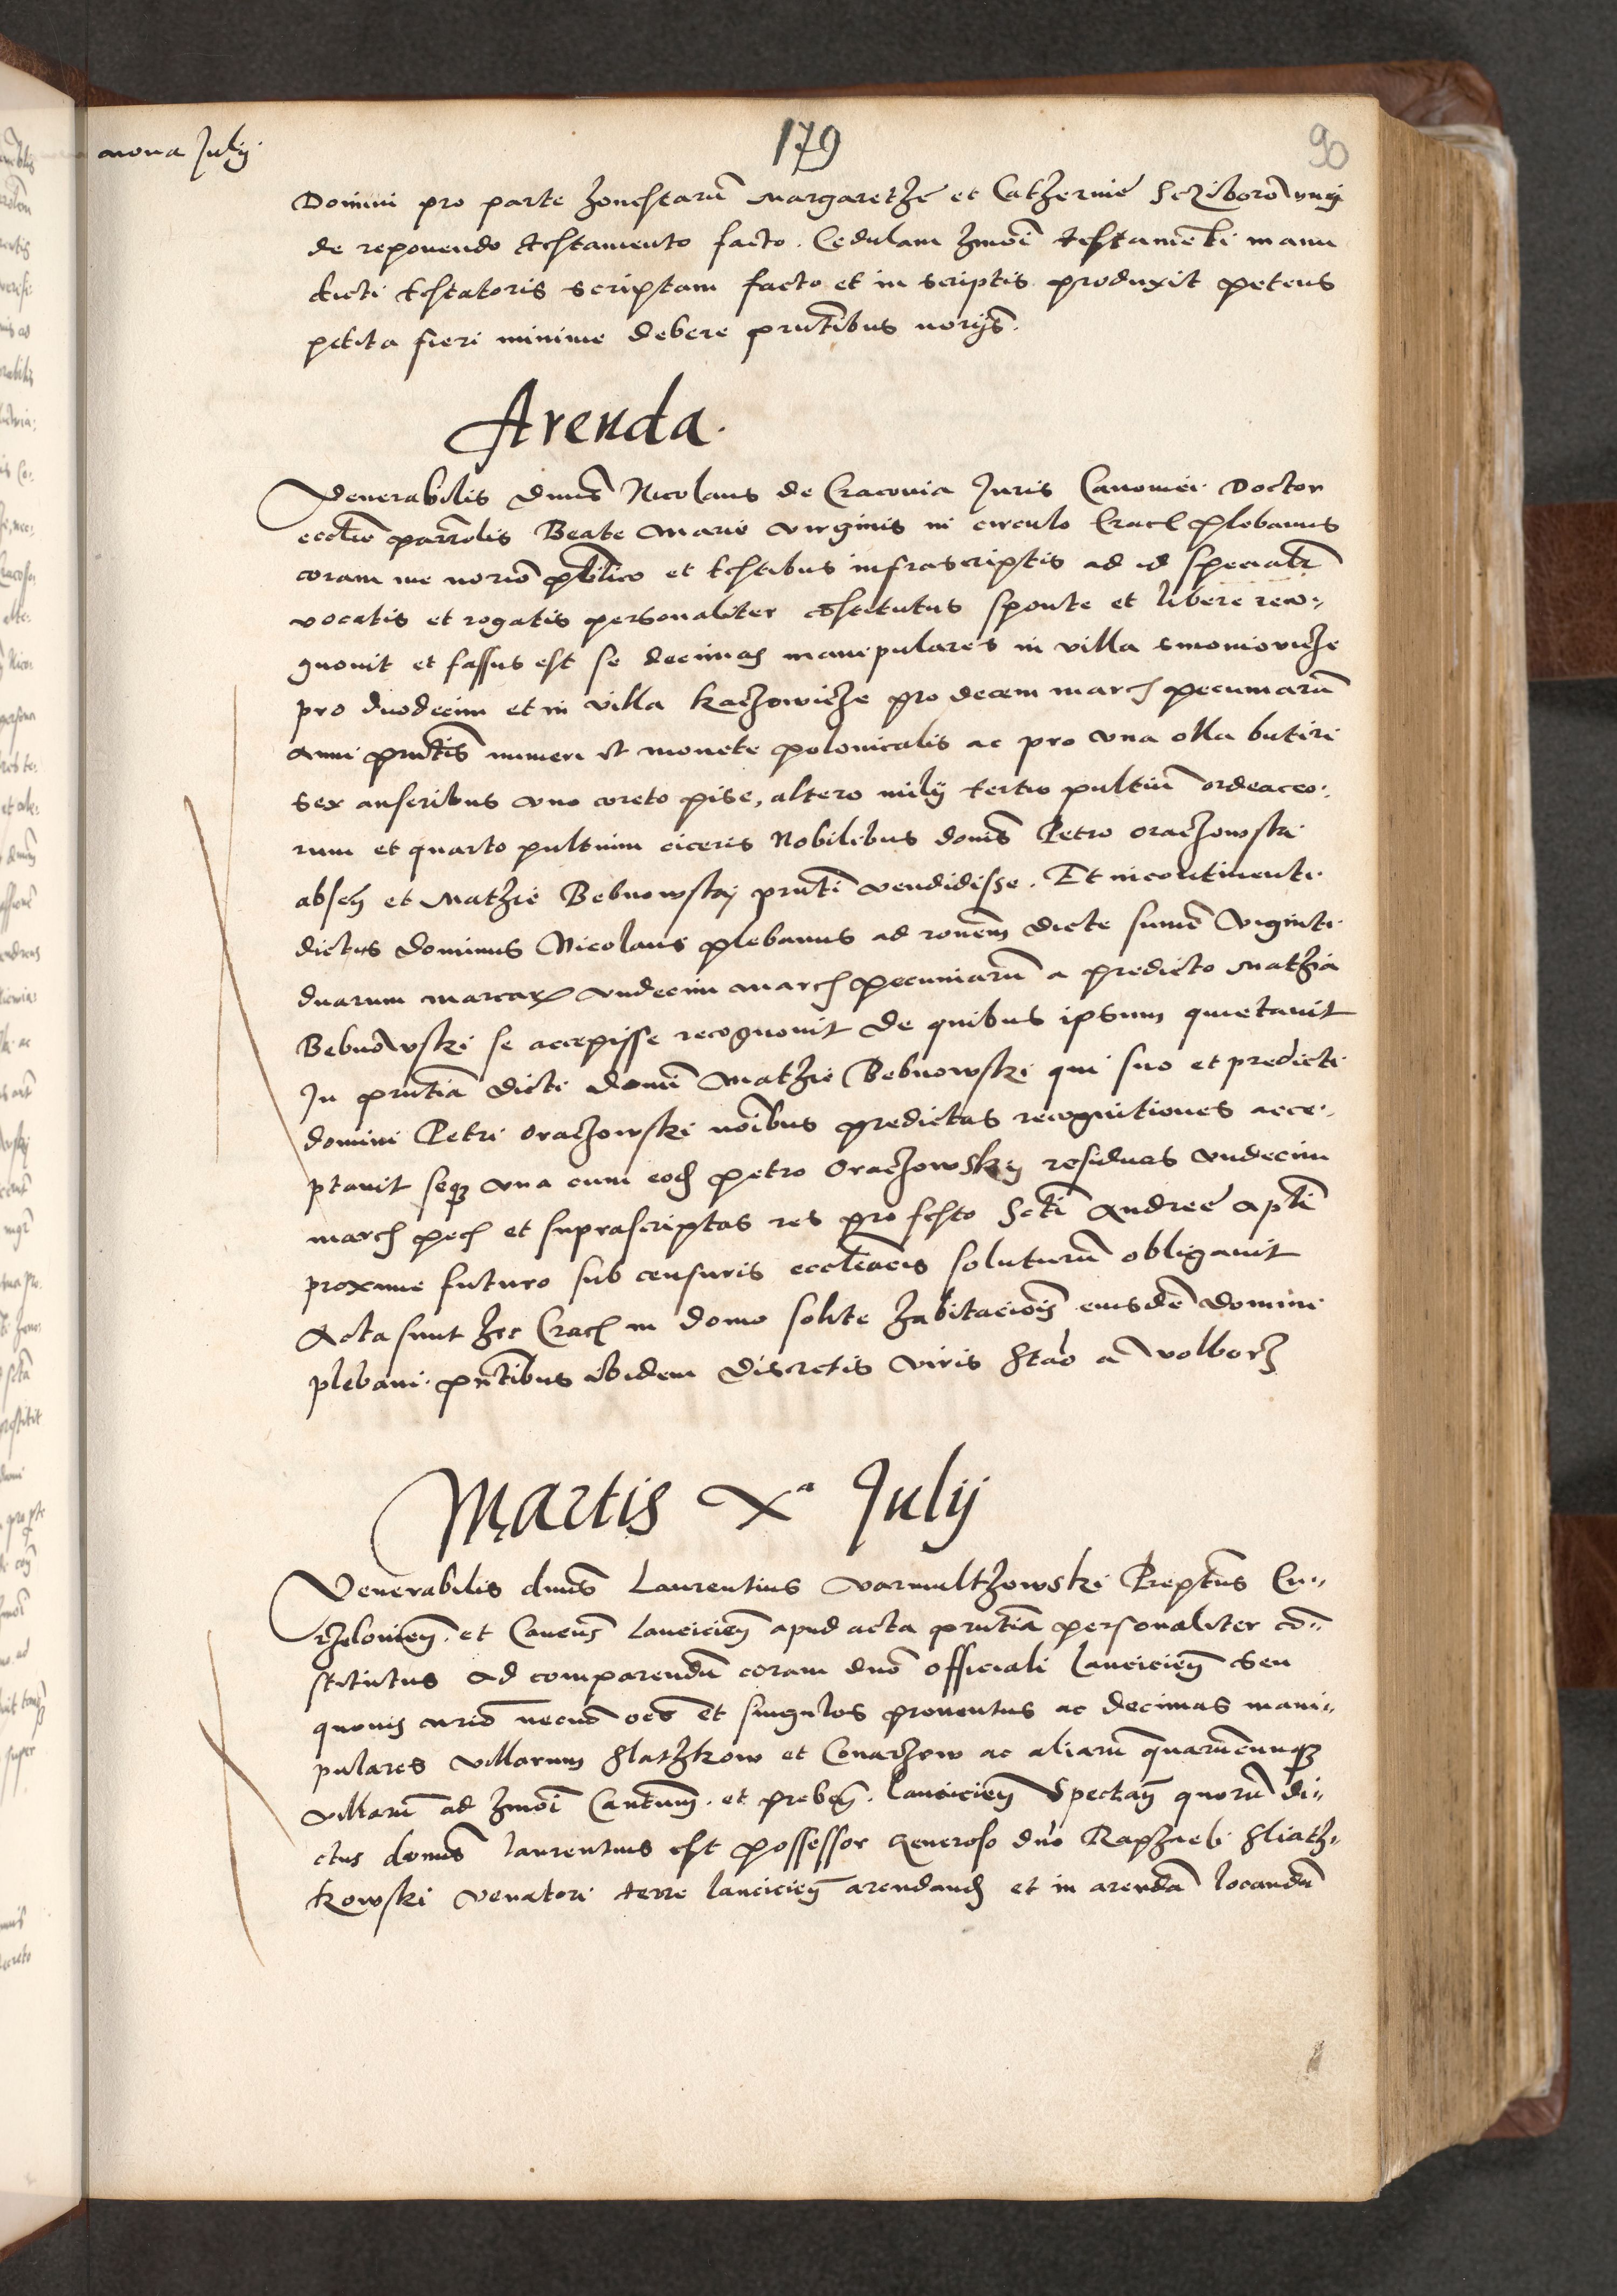 nona July
179
90
Domini pro parte honestarũ Margarethe et Catherine
de reponendo testamento facto. Cedulam hmõi testamẽti manu
dicti testatoris scriptam facto et in scriptis produxit petens
petita fieri minime debere pñtibus norijs.
Arenda.
Venerabilis dnus Nicolaus de Cracovia Juris Canonici Doctor
ecclie parrolis Beate Marie virginis in circulo Crac plebanus
coram me norio publico et testibus infrascriptis ad id specialr
vocatis et rogatis personaliter cõstitutus sponte et libere reco-
gnouit et fassus est se decimas manipulares in villa Smoniovicze
pro duodecim et in villa Kaczowicze pro decem march pecuniarũ
anni pñtis numeri et monete polonicalis ac pro una olla butiri
sex anseribus uno coreto pise, altero milij tertio pultiũ ordeaceo-
rum et quarto pultium ciceris Nobilibus donis Petro Oraczowski
absen et Mathie Bebnowskj pñti vendidisse. Et incontinenti
dictus dominus Nicolaus plebanus ad ronem dicte sume viginti
duarum marcarum undecim march pecuniarũ a predicto Mathia
Bebnowski se accepisse recognouit de quibus ipsum quietauit
In pñtia dicti domi Mathie Bebnowski qui suo et predicti
domini Petri Oraczowski noibus predictas recognitiones acce-
ptauit seqz una cum eod Petro Oraczowskij residuas undecim
march pec et suprascriptas res pro festo Scti Andree apli
proxime futuro sub censuris eccleacis soluturũ obligauit
Acta sunt hec Crac in domo solite habitaciois eiusdẽ domini
plebani pñtibus ibidem discretis viris Stao a Wolborz
Martis Xª Julij
Venerabilis dnus Laurentius Varmultzowski Preptus Cu-
rzelovien et Cancus Lancicien apud acta pñtia personaliter cõ-
stitutus ad comparendũ coram dno officiali Lancicien seu
quouis norio necno oes et singulos prouentus ac decimas mani-
pulares villarum Slatzkow et Conarzew ac aliarũ quarũcunqz
villarũ ad hmoi Canctum et preben Lancicien spectan quorũ di-
ctus donus Laurentius est possessor Generoso dno Raphaeli Sliatz-
kowski venatori terre Lancicien arendand et in arendã locandũ